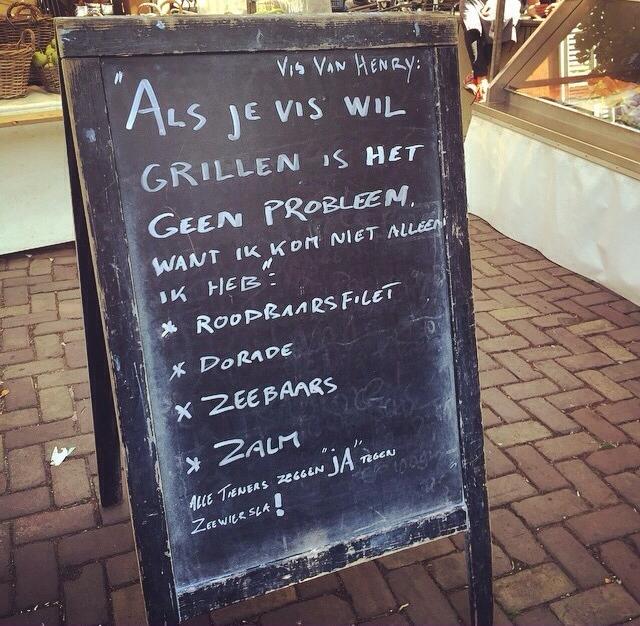 Vis Van Henry:
"Als je vis wil
grillen is het
geen probleem.
want ik kom niet alleen
ik heb":
* Roodbaarsfilet
* Dorade
* Zeebaars
* Zalm
Alle Tieners zeggen "jA" tegen
Zeewiersla!